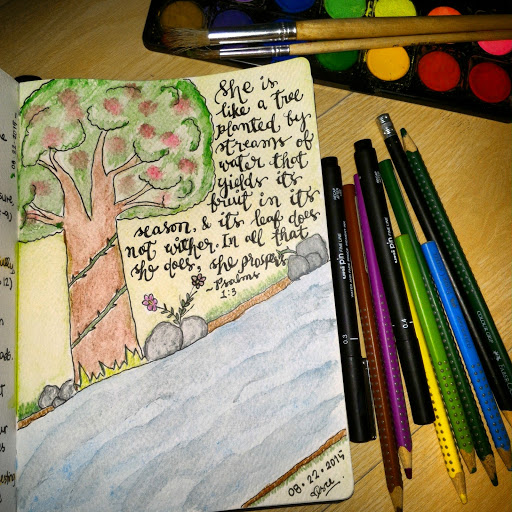 She is
like a tree
planted by
streams of
water that
yields its
fruit in its
season, & its leaf does
not wither. In all that
she does, she prospers
~Psalms
1:3
08.22.2015
uni pin FINE LINE
0.3